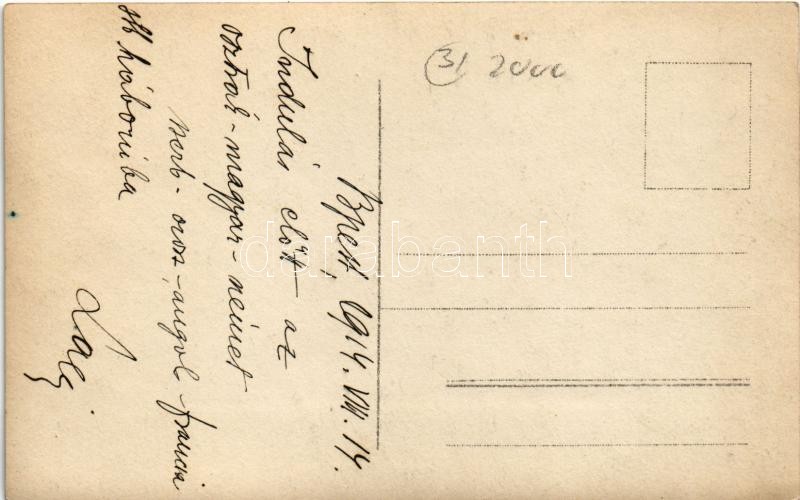 Bpest, 1914. VIII. 14.
Indulás előtt az
osztrák-magyar-német
szerb-orosz, angol, francia
stb háborúba
Laci
31 2000
darabanth